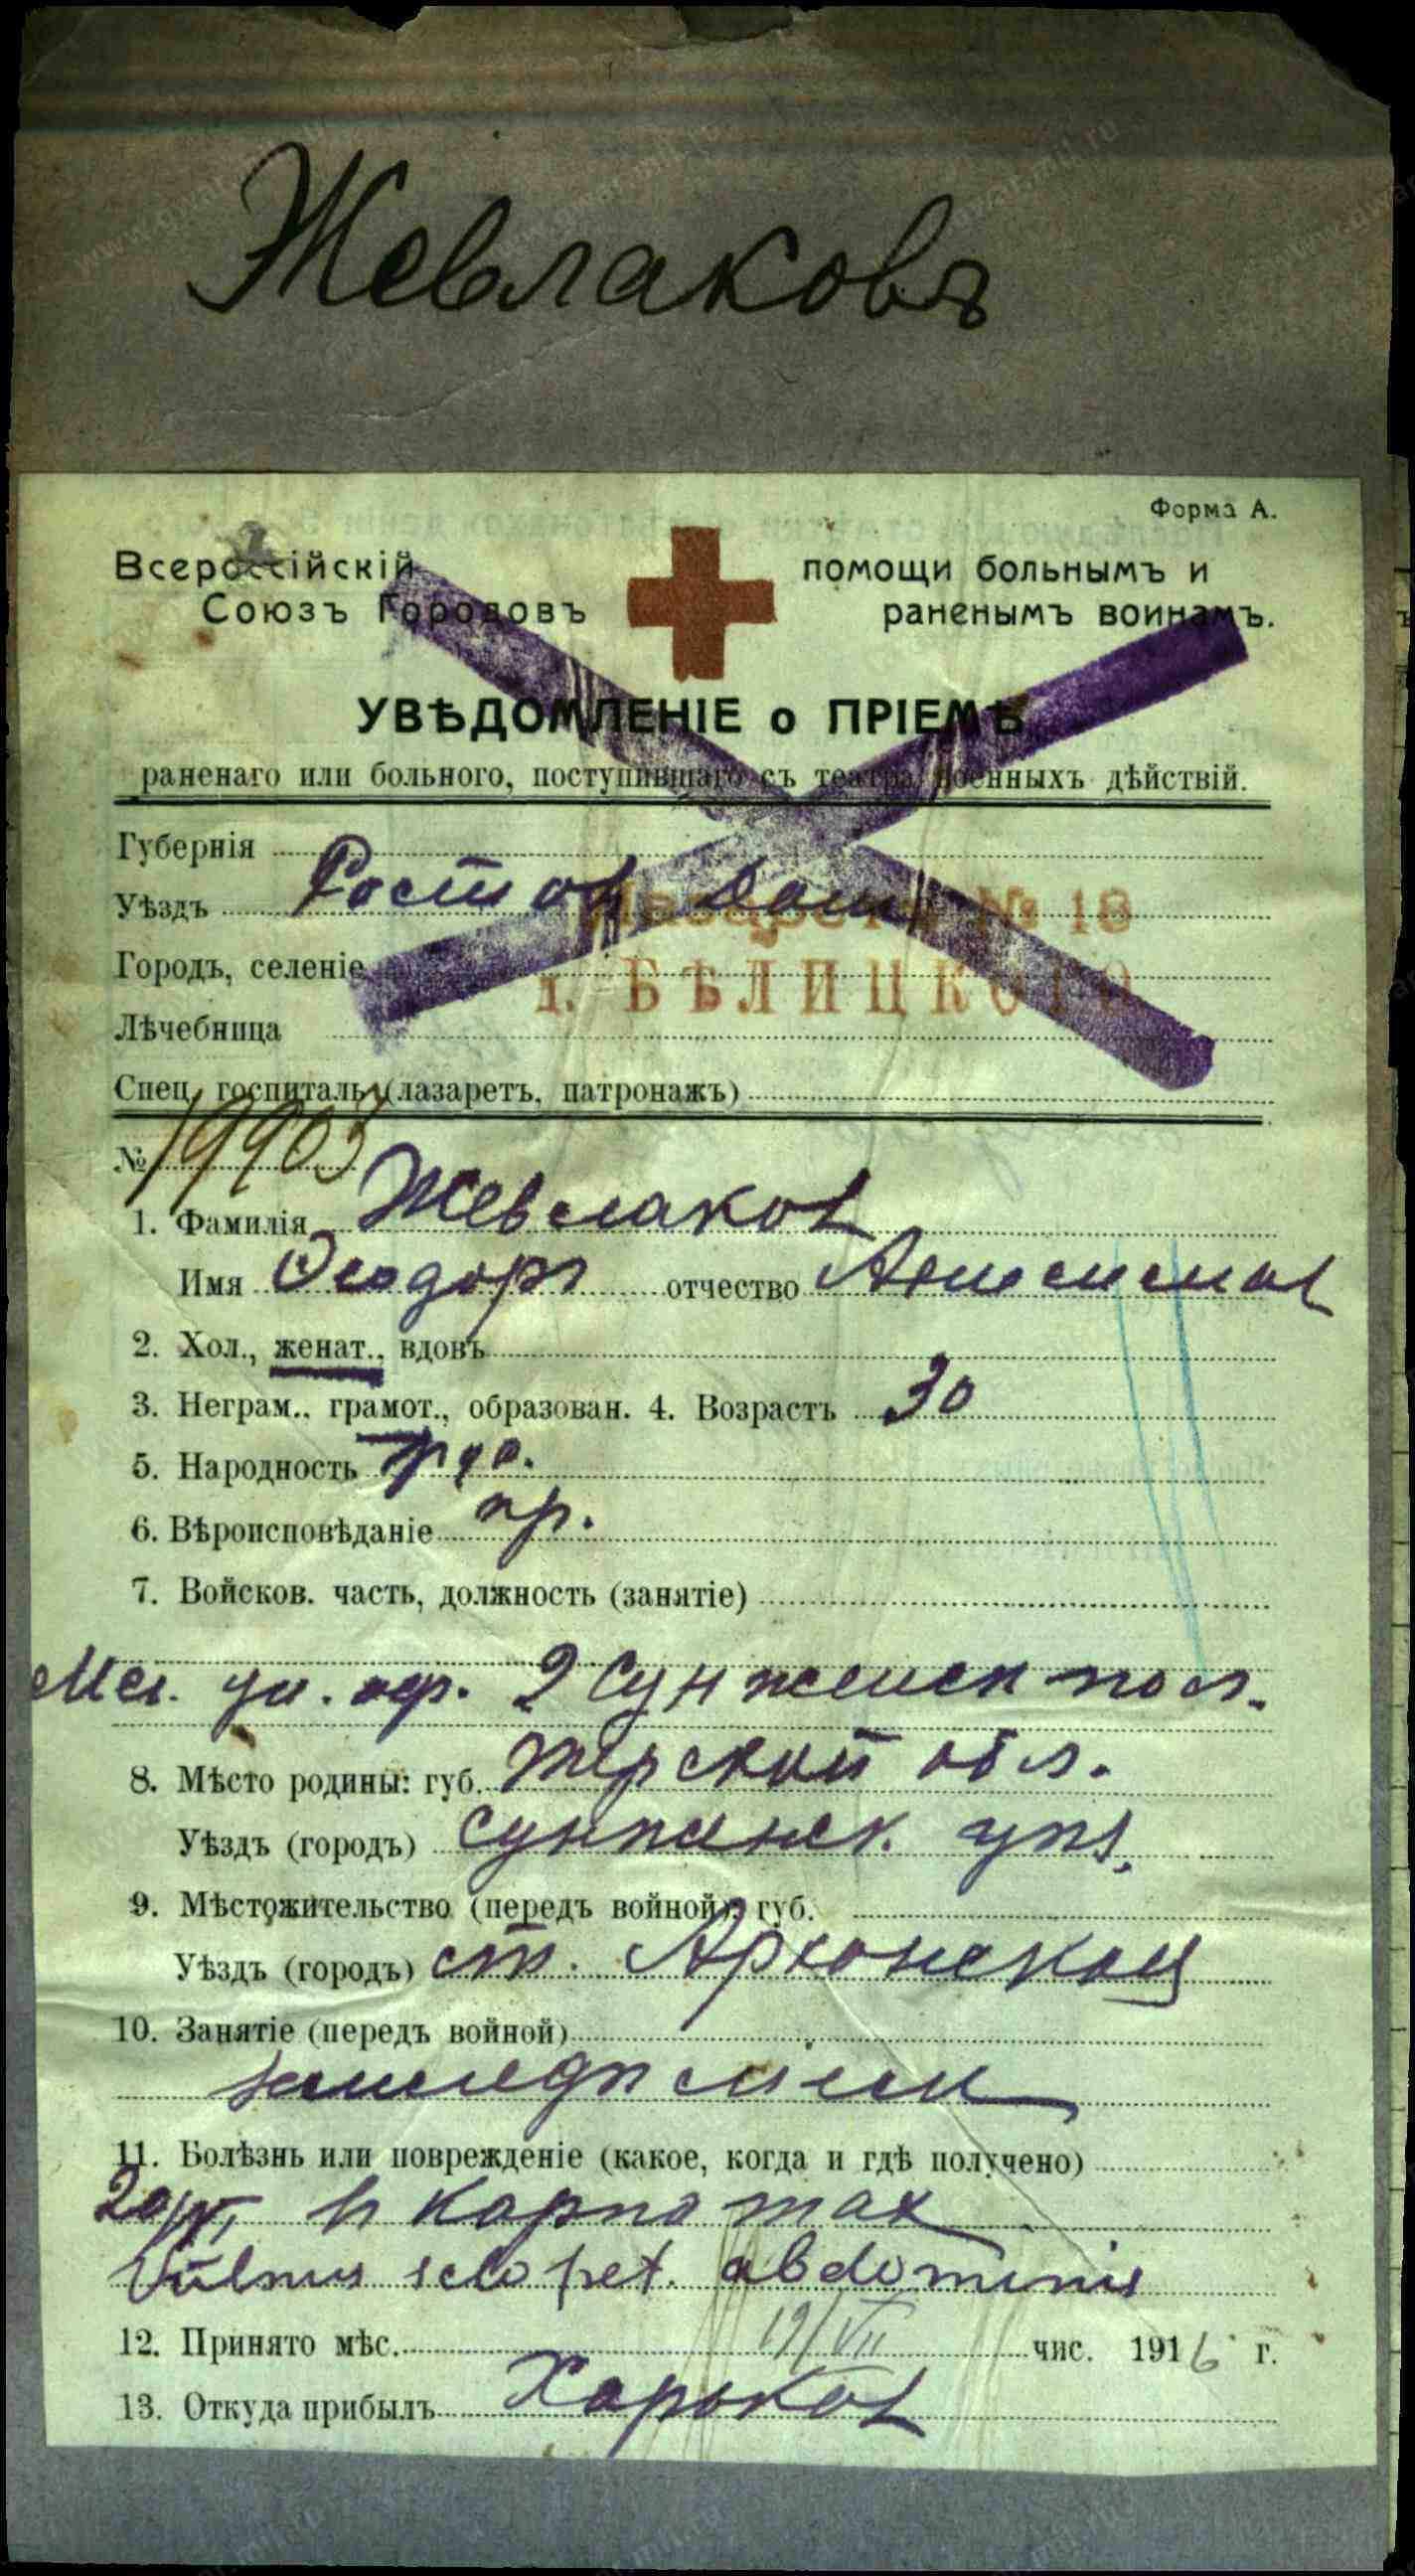 Жевлаковъ
Форма А.
Всероссійскій помощи больнымъ и
Союзъ Городовъ раненымъ воинамъ.
УВѢДОМЛЕНІЕ о ПРІЕМѢ
раненаго или больного, поступившаго съ театра военныхъ дѣйствій.
Губернія
Уѣздъ Ростов Дон
№ 18
Городъ, селеніе
БѢЛИЦКОГО
Лѣчебница
Спец. госпиталь (лазаретъ, патронажъ)
№ 19903
1. Фамилія Жевлаков
Имя Ѳеодоръ отчество Анисимов
2. Хол., женат., вдовъ
3. Неграм., грамот., образован. 4. Возрастъ 30
5. Народность
6. Вѣроисповѣданіе пр.
7. Войсков. часть, должность (занятіе)
Мл. ун. оф. 2 Сунженск пол.
8. Мѣсто родины: губ. Терской обл.
Уѣздъ (городъ) Сунженск.
9. Мѣстожительство (передъ войной): губ.
Уѣздъ (городъ) ст. Архонской
10. Занятіе (передъ войной)
земледѣлец
11. Болѣзнь или поврежденіе (какое, когда и гдѣ получено)
в Карпатах
Vulnus sclopet. abdominis
12. Принято мѣс. 19/VII чис. 1916 г.
13. Откуда прибылъ Харьков